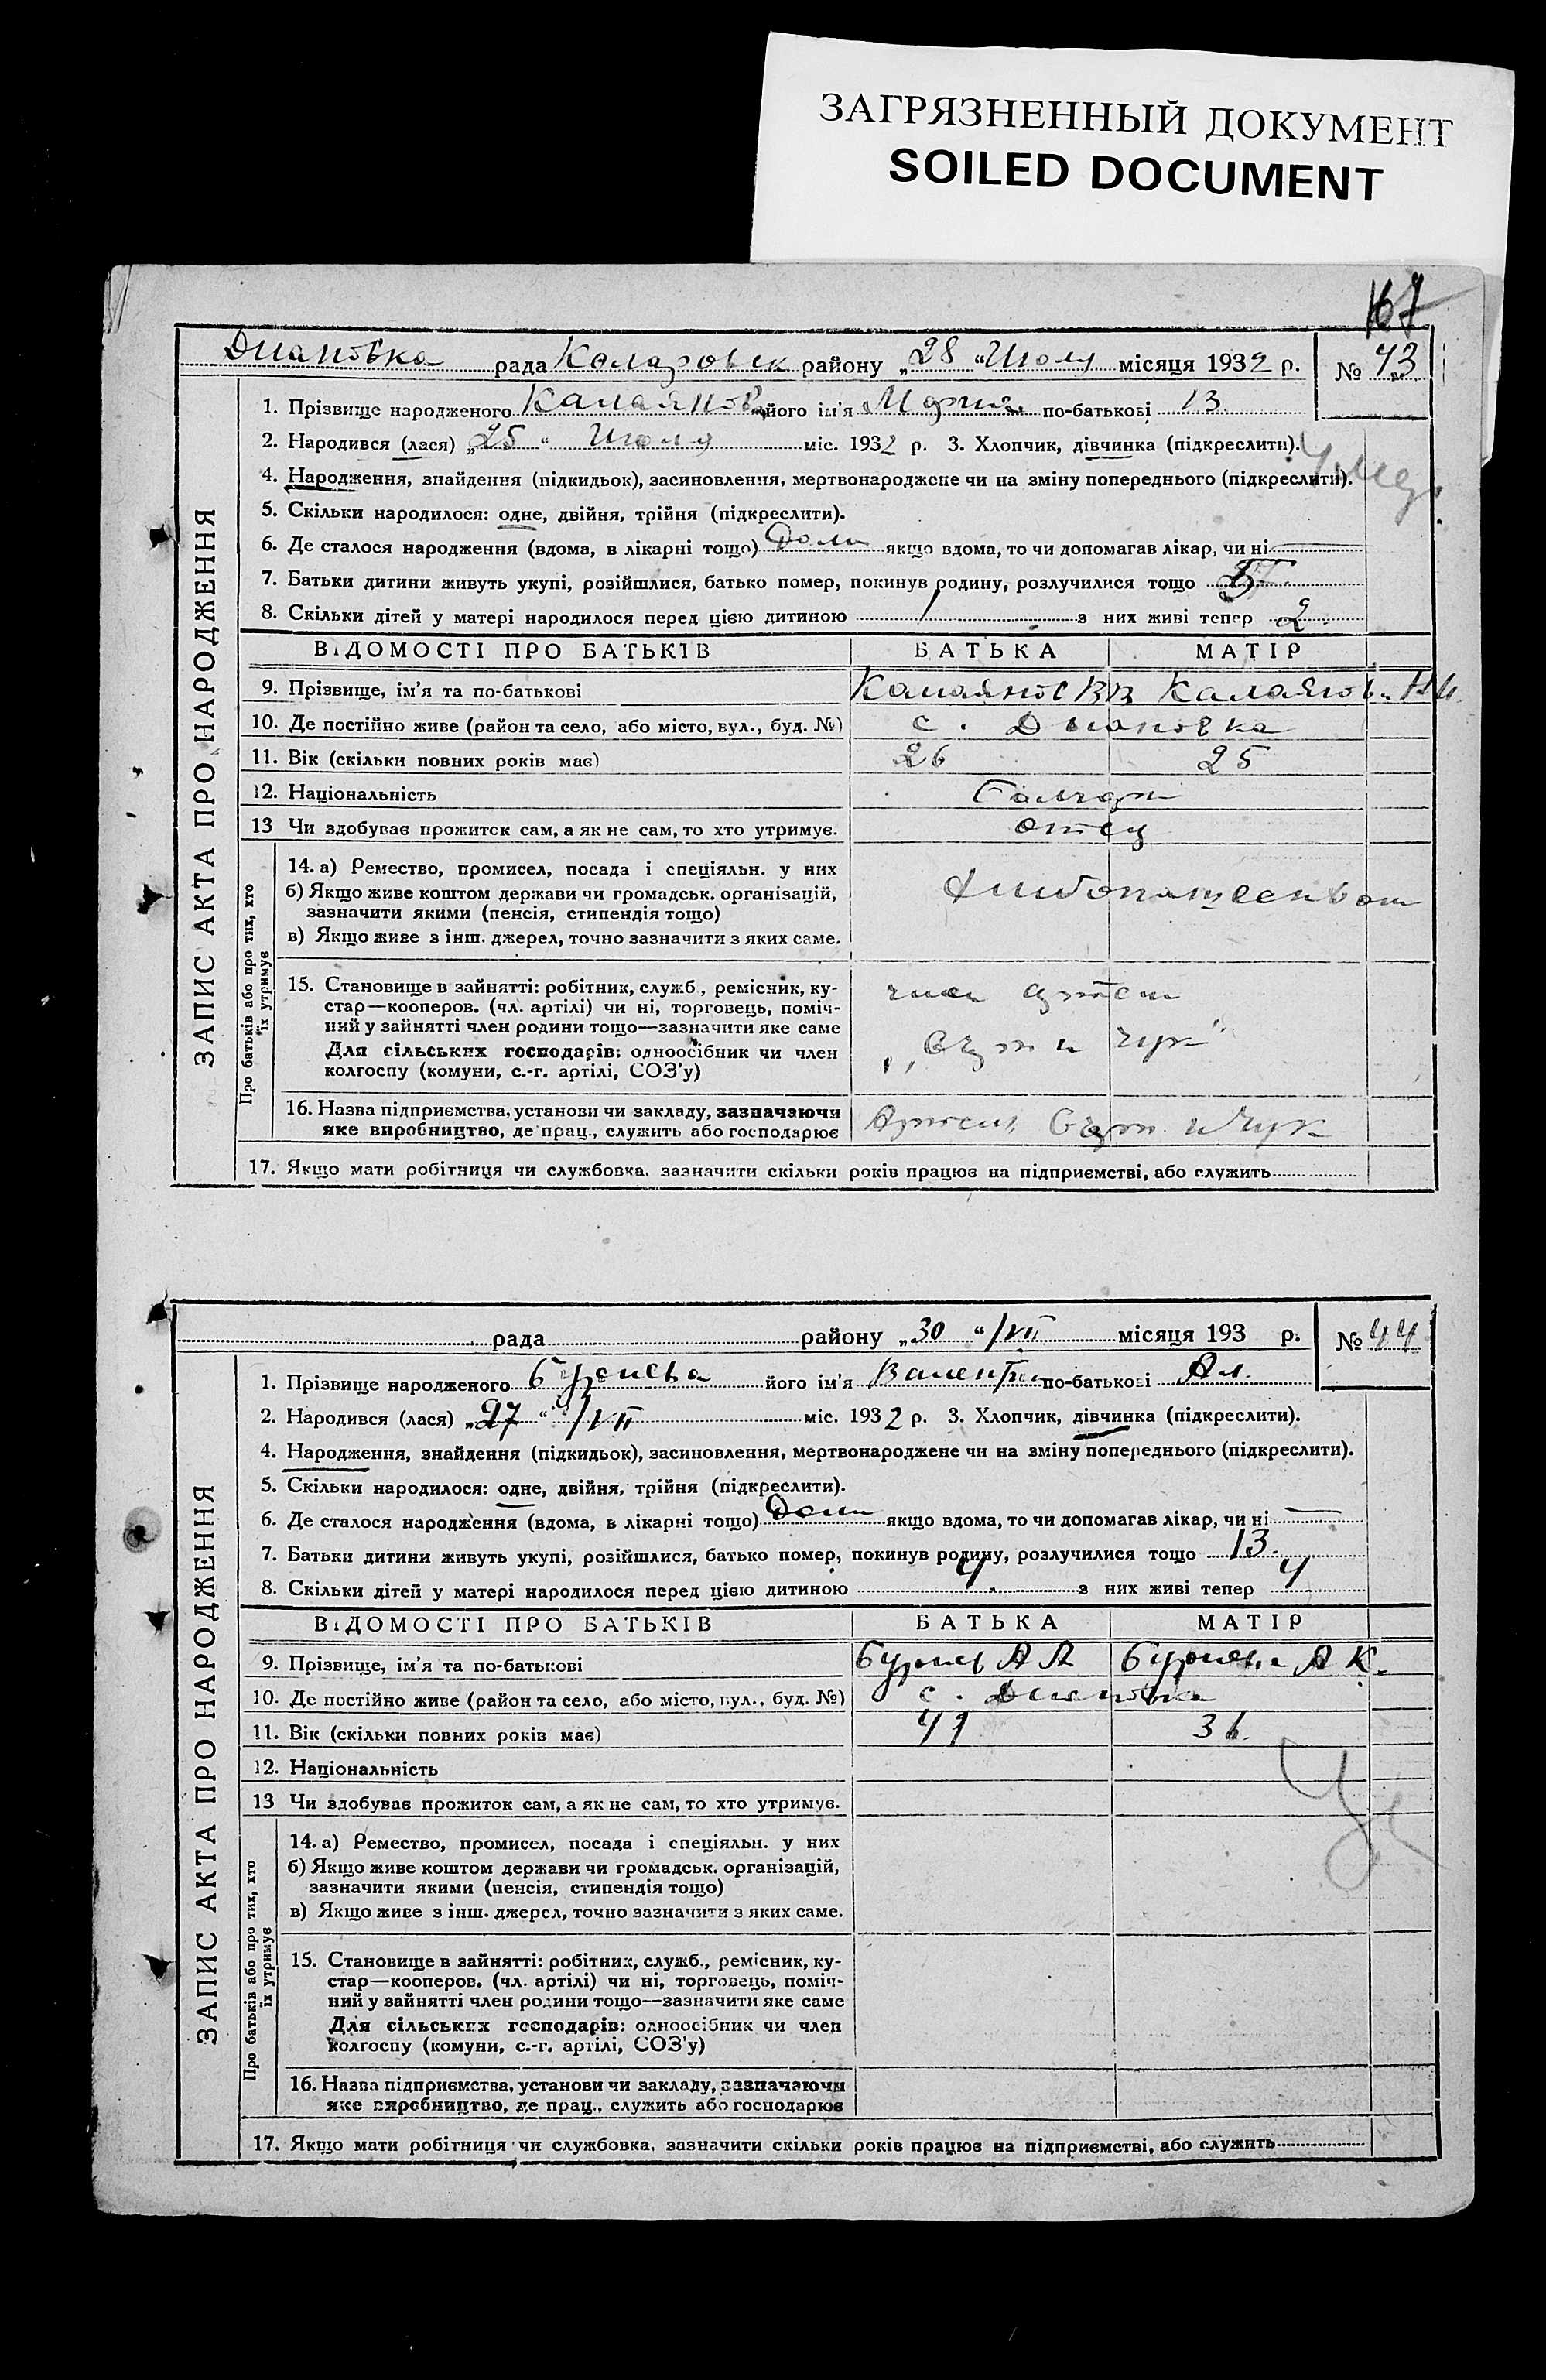 ЗАГРЯЗНЕННЫЙ ДОКУМЕНТ
SOILED DOCUMENT
167
Диановка рада Коларовск району „28 “ Июля місяця 1932 р. № 43
ЗАПИС АКТА ПРО НАРОДЖЕННЯ
1. Прізвище народженого його ім'я Мария по-батькові
2. Народився (лася) „25 “ Июля міс. 1932 р. 3. Хлопчик, дівчинка (підкреслити).
4. Народження, знайдення (підкидьок), засиновлення, мертвонароджене чи на зміну попереднього (підкреслити).
5. Скільки народилося: одне, двійня, трійня (підкреслити).
6. Де сталося народження (вдома, в лікарні тощо) Дома якщо вдома, то чи допомагав лікар, чи ні —
7. Батьки дитини живуть укупі, розійшлися, батько помер, покинув родину, розлучилися тощо
8. Скільки дітей у матері народилося перед цією дитиною 1 з них живі тепер 2
ВІДОМОСТІ ПРО БАТЬКІВ БАТЬКА МАТІР
9. Прізвище, ім'я та по-батькові
10. Де постійно живе (район та село, або місто, вул., буд. №) с. Диановка
11. Вік (скільки повних років має) 26 25
12. Національність Болгари
13 Чи здобував прожиток сам, а як не сам, то хто утримує. отец
Про батьків або про тих, хто їх утримує
14. а) Ремество, промисел, посада і спеціяльн. у них
б) Якщо живе коштом держави чи громадськ. організацій,
зазначити якими (пенсія, стипендія тощо)
в) Якщо живе з інш. джерел, точно зазначити з яких саме.
15. Становище в зайнятті: робітник, служб., ремісник, ку-
стар—кооперов. (чл. артілі) чи ні, торговець, поміч-
ний у зайнятті член родини тощо—зазначити яке саме
Для сільських господарів: одноосібник чи член
колгоспу (комуни, с.-г. артілі, СОЗ'у)
член артели
„Серп и
16. Назва підприємства, установи чи закладу, зазначаючи
яке виробництво, де прац., служить або господарює
Артель Серп и
17. Якщо мати робітниця чи службовка, зазначити скільки років працює на підприємстві, або служить
рада району „30 “/VII місяця 193 р. № 44
ЗАПИС АКТА ПРО НАРОДЖЕННЯ
1. Прізвище народженого його ім'я по-батькові Ал.
2. Народився (лася) „27 “/VII міс. 1932 р. 3. Хлопчик, дівчинка (підкреслити).
4. Народження, знайдення (підкидьок), засиновлення, мертвонароджене чи на зміну попереднього (підкреслити).
5. Скільки народилося: одне, двійня, трійня (підкреслити).
6. Де сталося народження (вдома, в лікарні тощо) Дома якщо вдома, то чи допомагав лікар, чи ні —
7. Батьки дитини живуть укупі, розійшлися, батько помер, покинув родину, розлучилися тощо
8. Скільки дітей у матері народилося перед цією дитиною 4 з них живі тепер 4
ВІДОМОСТІ ПРО БАТЬКІВ БАТЬКА МАТІР
9. Прізвище, ім'я та по-батькові А А А К.
10. Де постійно живе (район та село, або місто, вул., буд. №) с. Диановка
11. Вік (скільки повних років має) 41 36.
12. Національність
13 Чи здобував прожиток сам, а як не сам, то хто утримує.
Про батьків або про тих, хто їх утримує
14. а) Ремество, промисел, посада і спеціяльн. у них
б) Якщо живе коштом держави чи громадськ. організацій,
зазначити якими (пенсія, стипендія тощо)
в) Якщо живе з інш. джерел, точно зазначити з яких саме.
15. Становище в зайнятті: робітник, служб., ремісник, ку-
стар—кооперов. (чл. артілі) чи ні, торговець, поміч-
ний у зайнятті член родини тощо—зазначити яке саме
Для сільських господарів: одноосібник чи член
колгоспу (комуни, с.-г. артілі, СОЗ'у)
16. Назва підприємства, установи чи закладу, зазначаючи
яке виробництво, де прац., служить або господарює
17. Якщо мати робітниця чи службовка, зазначити скільки років працює на підприємстві, або служить